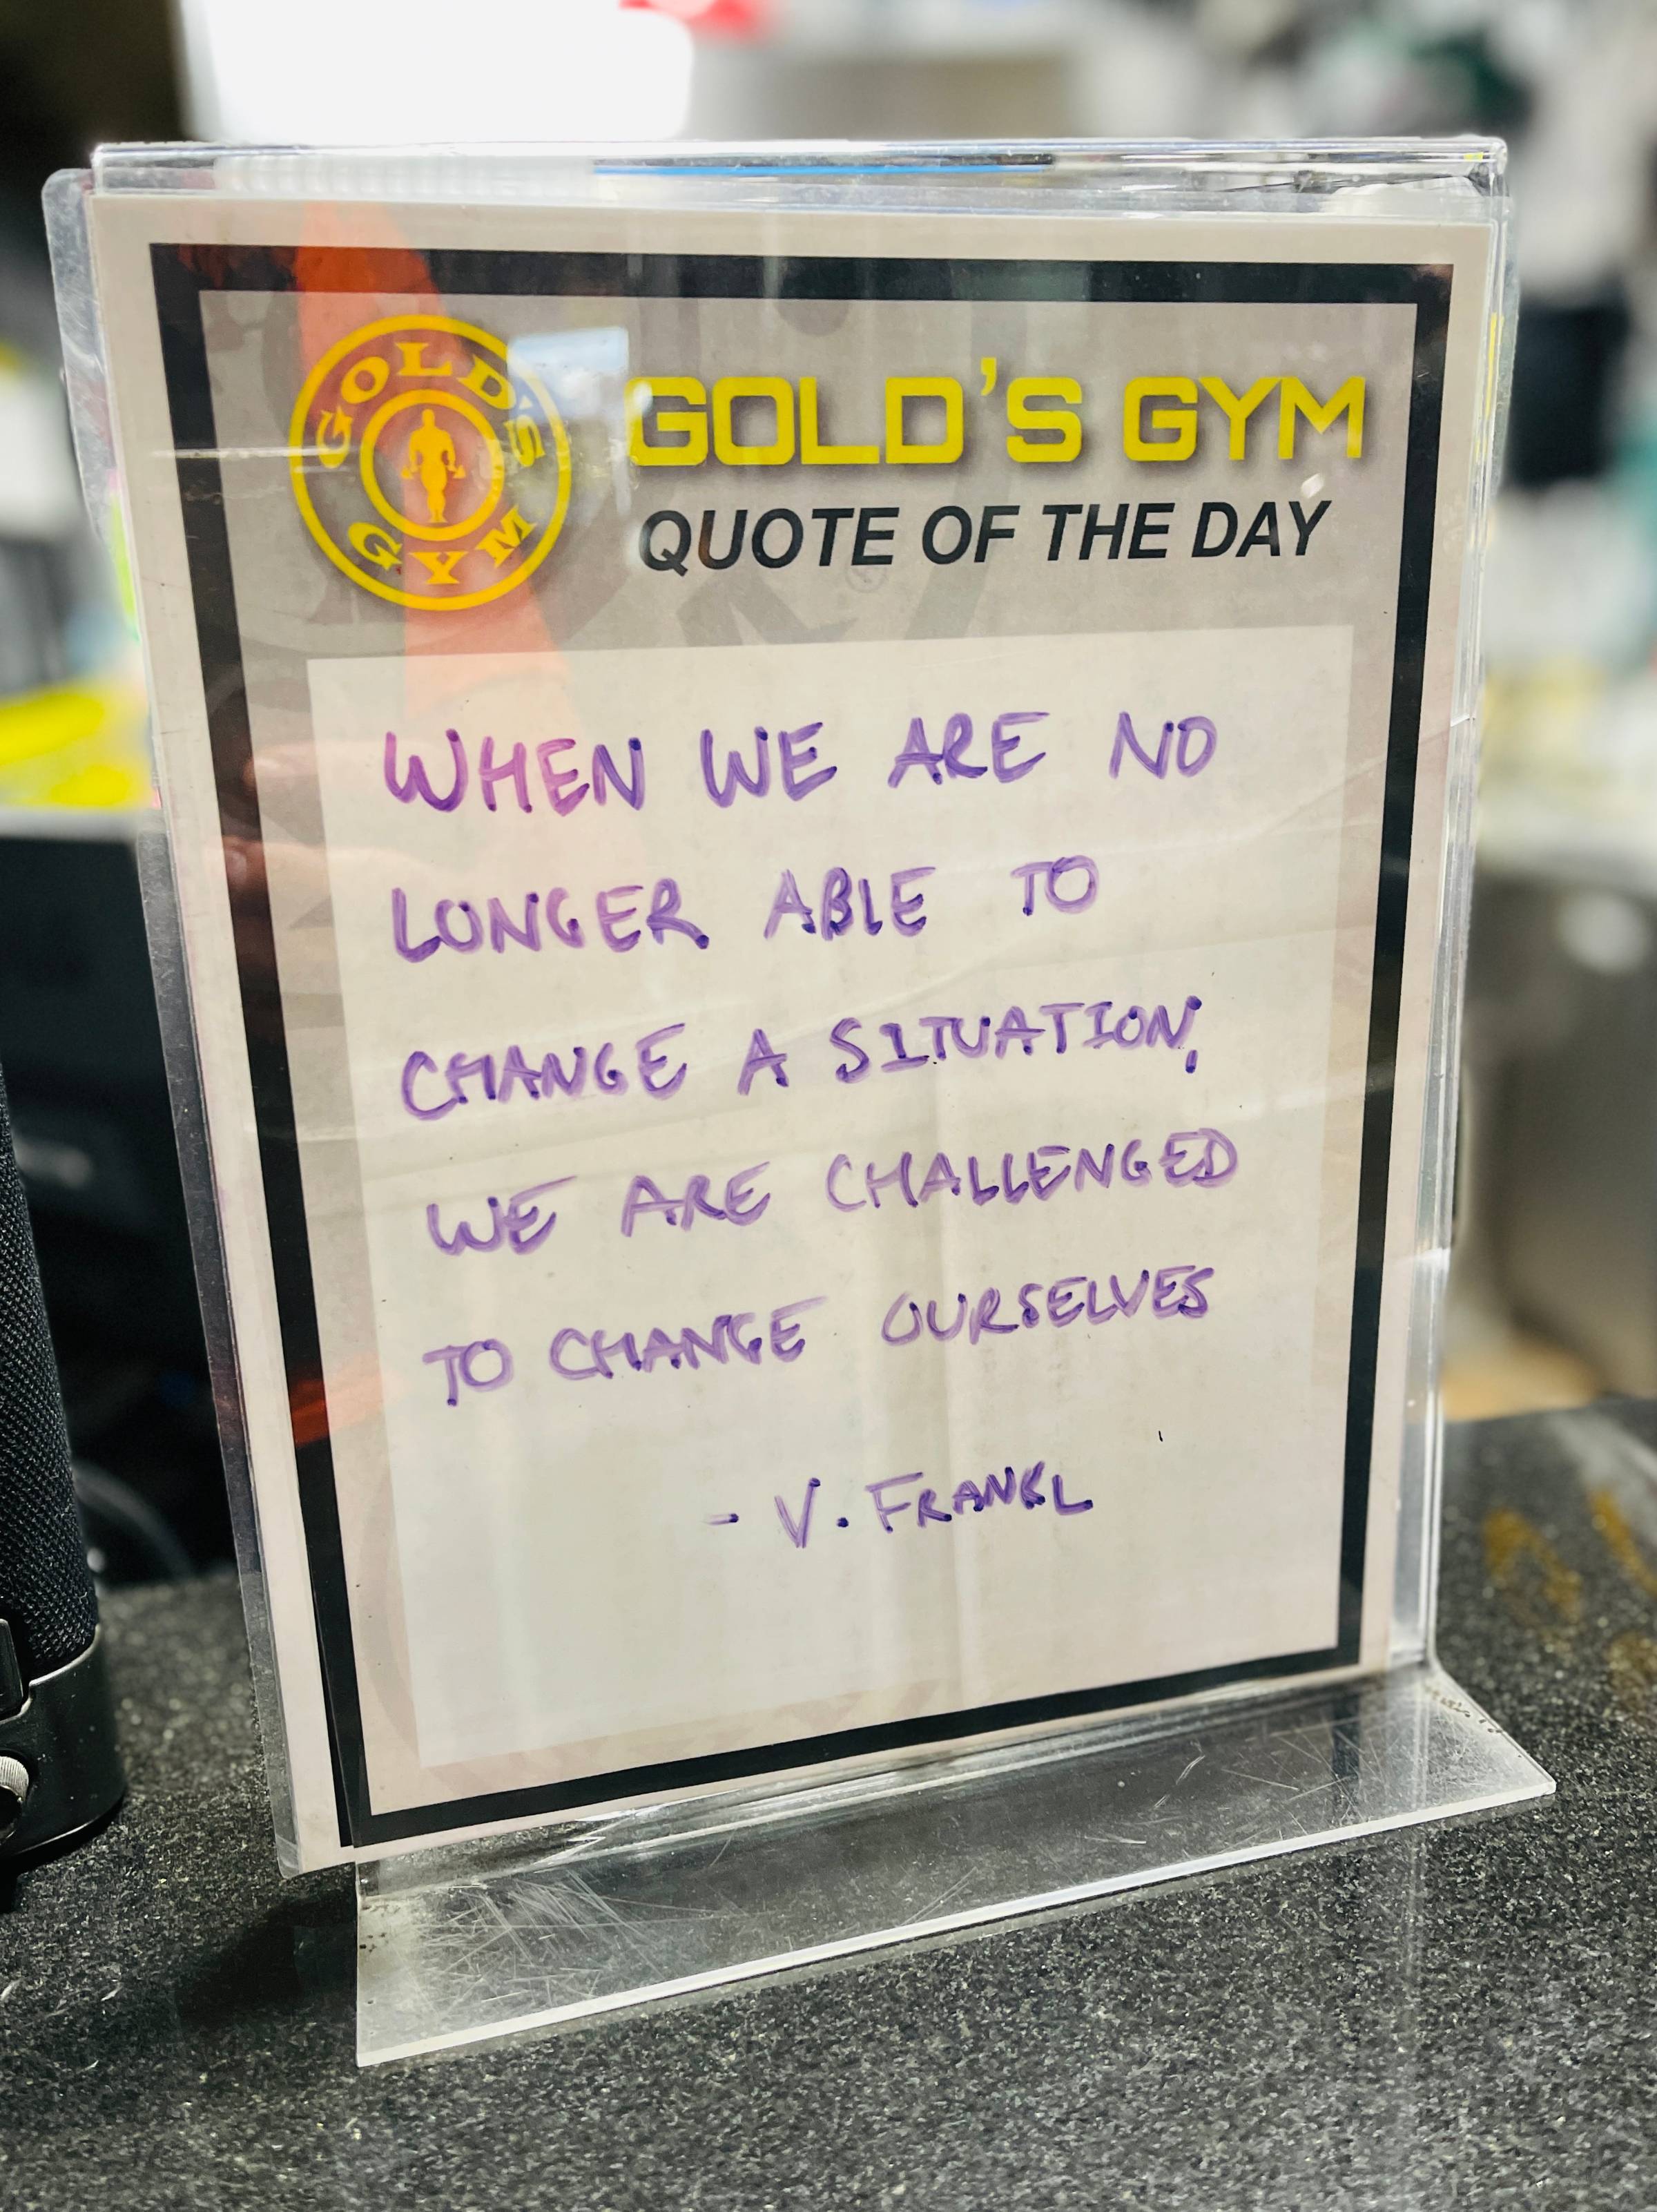 GOLD'S
GYM
GOLD'S GYM
QUOTE OF THE DAY
WHEN WE ARE NO
LONGER ABLE TO
CHANGE A SITUATION,
WE ARE CHALLENGED
TO CHANGE OURSELVES
- V. FRANKL